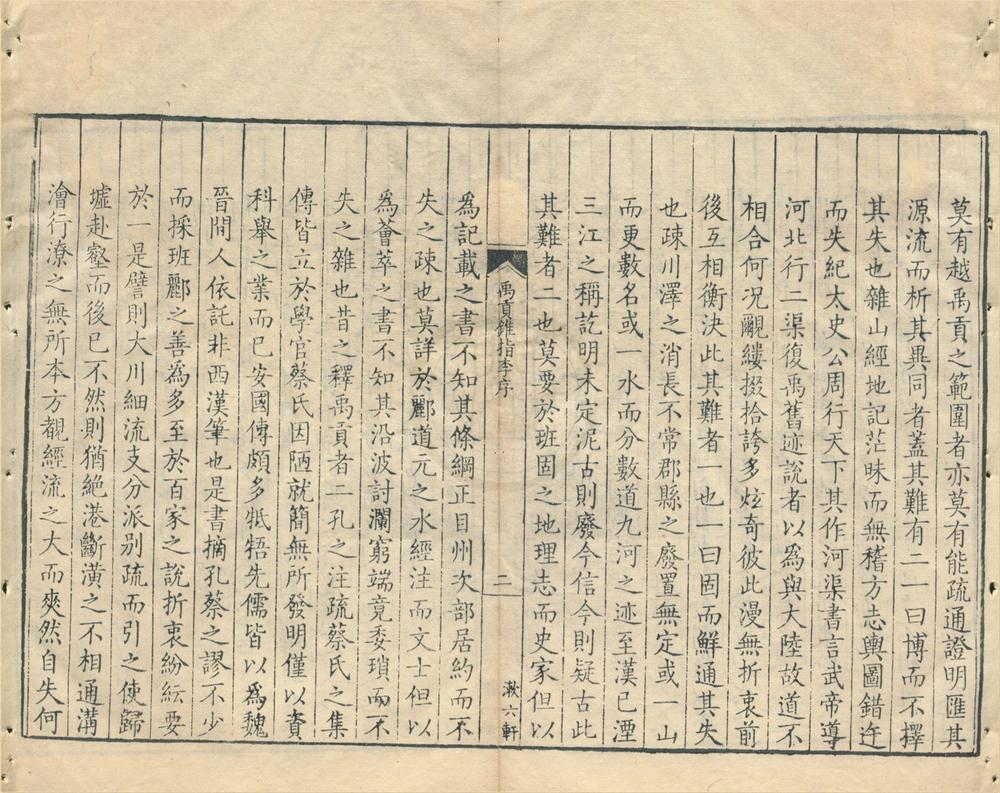 莫有越禹貢之範圍者亦莫有能疏通證明匯其
源流而析其異同者蓋其難有二一曰博而不擇
其失也雜山經地記茫昧而無稽方志輿圖錯迕
而失紀太史公周行天下其作河渠書言武帝導
河北行二渠復禹舊迹説者以爲與大陸故道不
相合何况覼縷掇拾誇多炫奇彼此漫無折衷前
後互相衡決此其難者一也一曰固而鮮通其失
也疎川澤之消長不常郡縣之廢置無定或一山
而更數名或一水而分數道九河之迹至漢已湮
三江之稱訖明未定泥古則廢今信今則疑古此
其難者二也莫要於班固之地理志而史家但以
禹貢錐指李序
二
漱六軒
爲記載之書不知其條綱正目州次部居約而不
失之疎也莫詳於酈道元之水經注而文士但以
爲薈萃之書不知其沿波討瀾窮端竟委瑣而不
失之雜也昔之釋禹貢者二孔之注疏蔡氏之集
傳皆立於學官蔡氏因陋就簡無所發明僅以資
科舉之業而已安國傳頗多牴牾先儒皆以爲魏
晉間人依託非西漢筆也是書摘孔蔡之謬不少
而採班酈之善爲多至於百家之説折衷紛紜要
於一是譬則大川細流支分派别疏而引之使歸
墟赴壑而後已不然則猶絶港斷潢之不相通溝
澮行潦之無所本方覩經流之大而爽然自失何